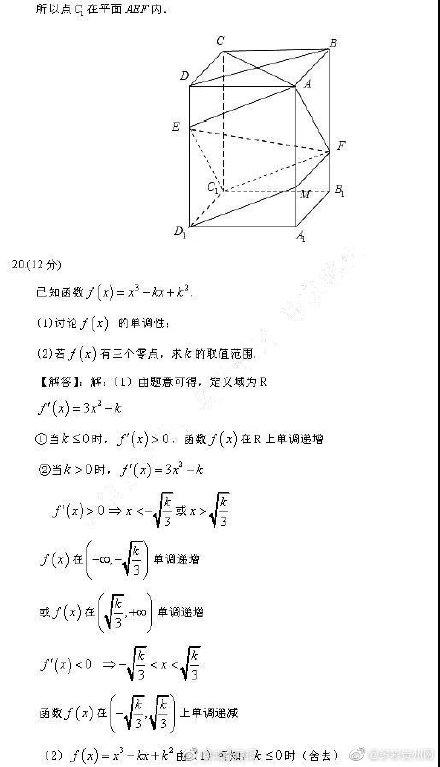 所以点C₁在平面AEF内.
C
B
D
A
E
F
C₁
M
B₁
D₁
A₁
20.(12分)
已知函数f(x)=x³-kx+k².
(1)讨论f(x)的单调性;
(2)若f(x)有三个零点，求k的取值范围.
【解答】：解：(1)由题意可得，定义域为R
f'(x)=3x²-k
①当k≤0时，f'(x)>0，函数f(x)在R上单调递增
②当k>0时，f'(x)=3x²-k
f'(x)>0⇒x<-√(k/3)或x>√(k/3)
f(x)在(-∞,-√(k/3))单调递增
或f(x)在(√(k/3),+∞)单调递增
f'(x)<0 ⇒-√(k/3)<x<√(k/3)
函数f(x)在(-√(k/3),√(k/3))上单调递减
(2)f(x)=x³-kx+k²由(1)可知，k≤0时(舍去)